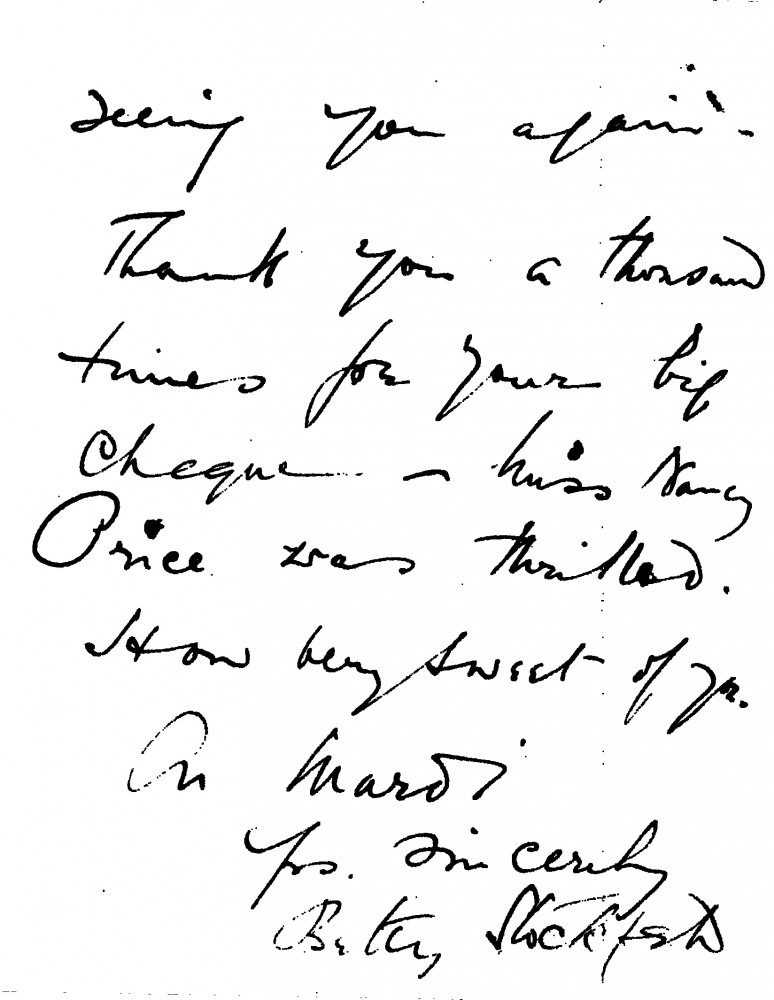 seeing you again -
Thank you a thousand
times for your big
Cheque - Miss Nancy
Price was thrilled.
How very sweet of yr.
On Mardi
Yrs. Sincerely
Betty Stockfeld